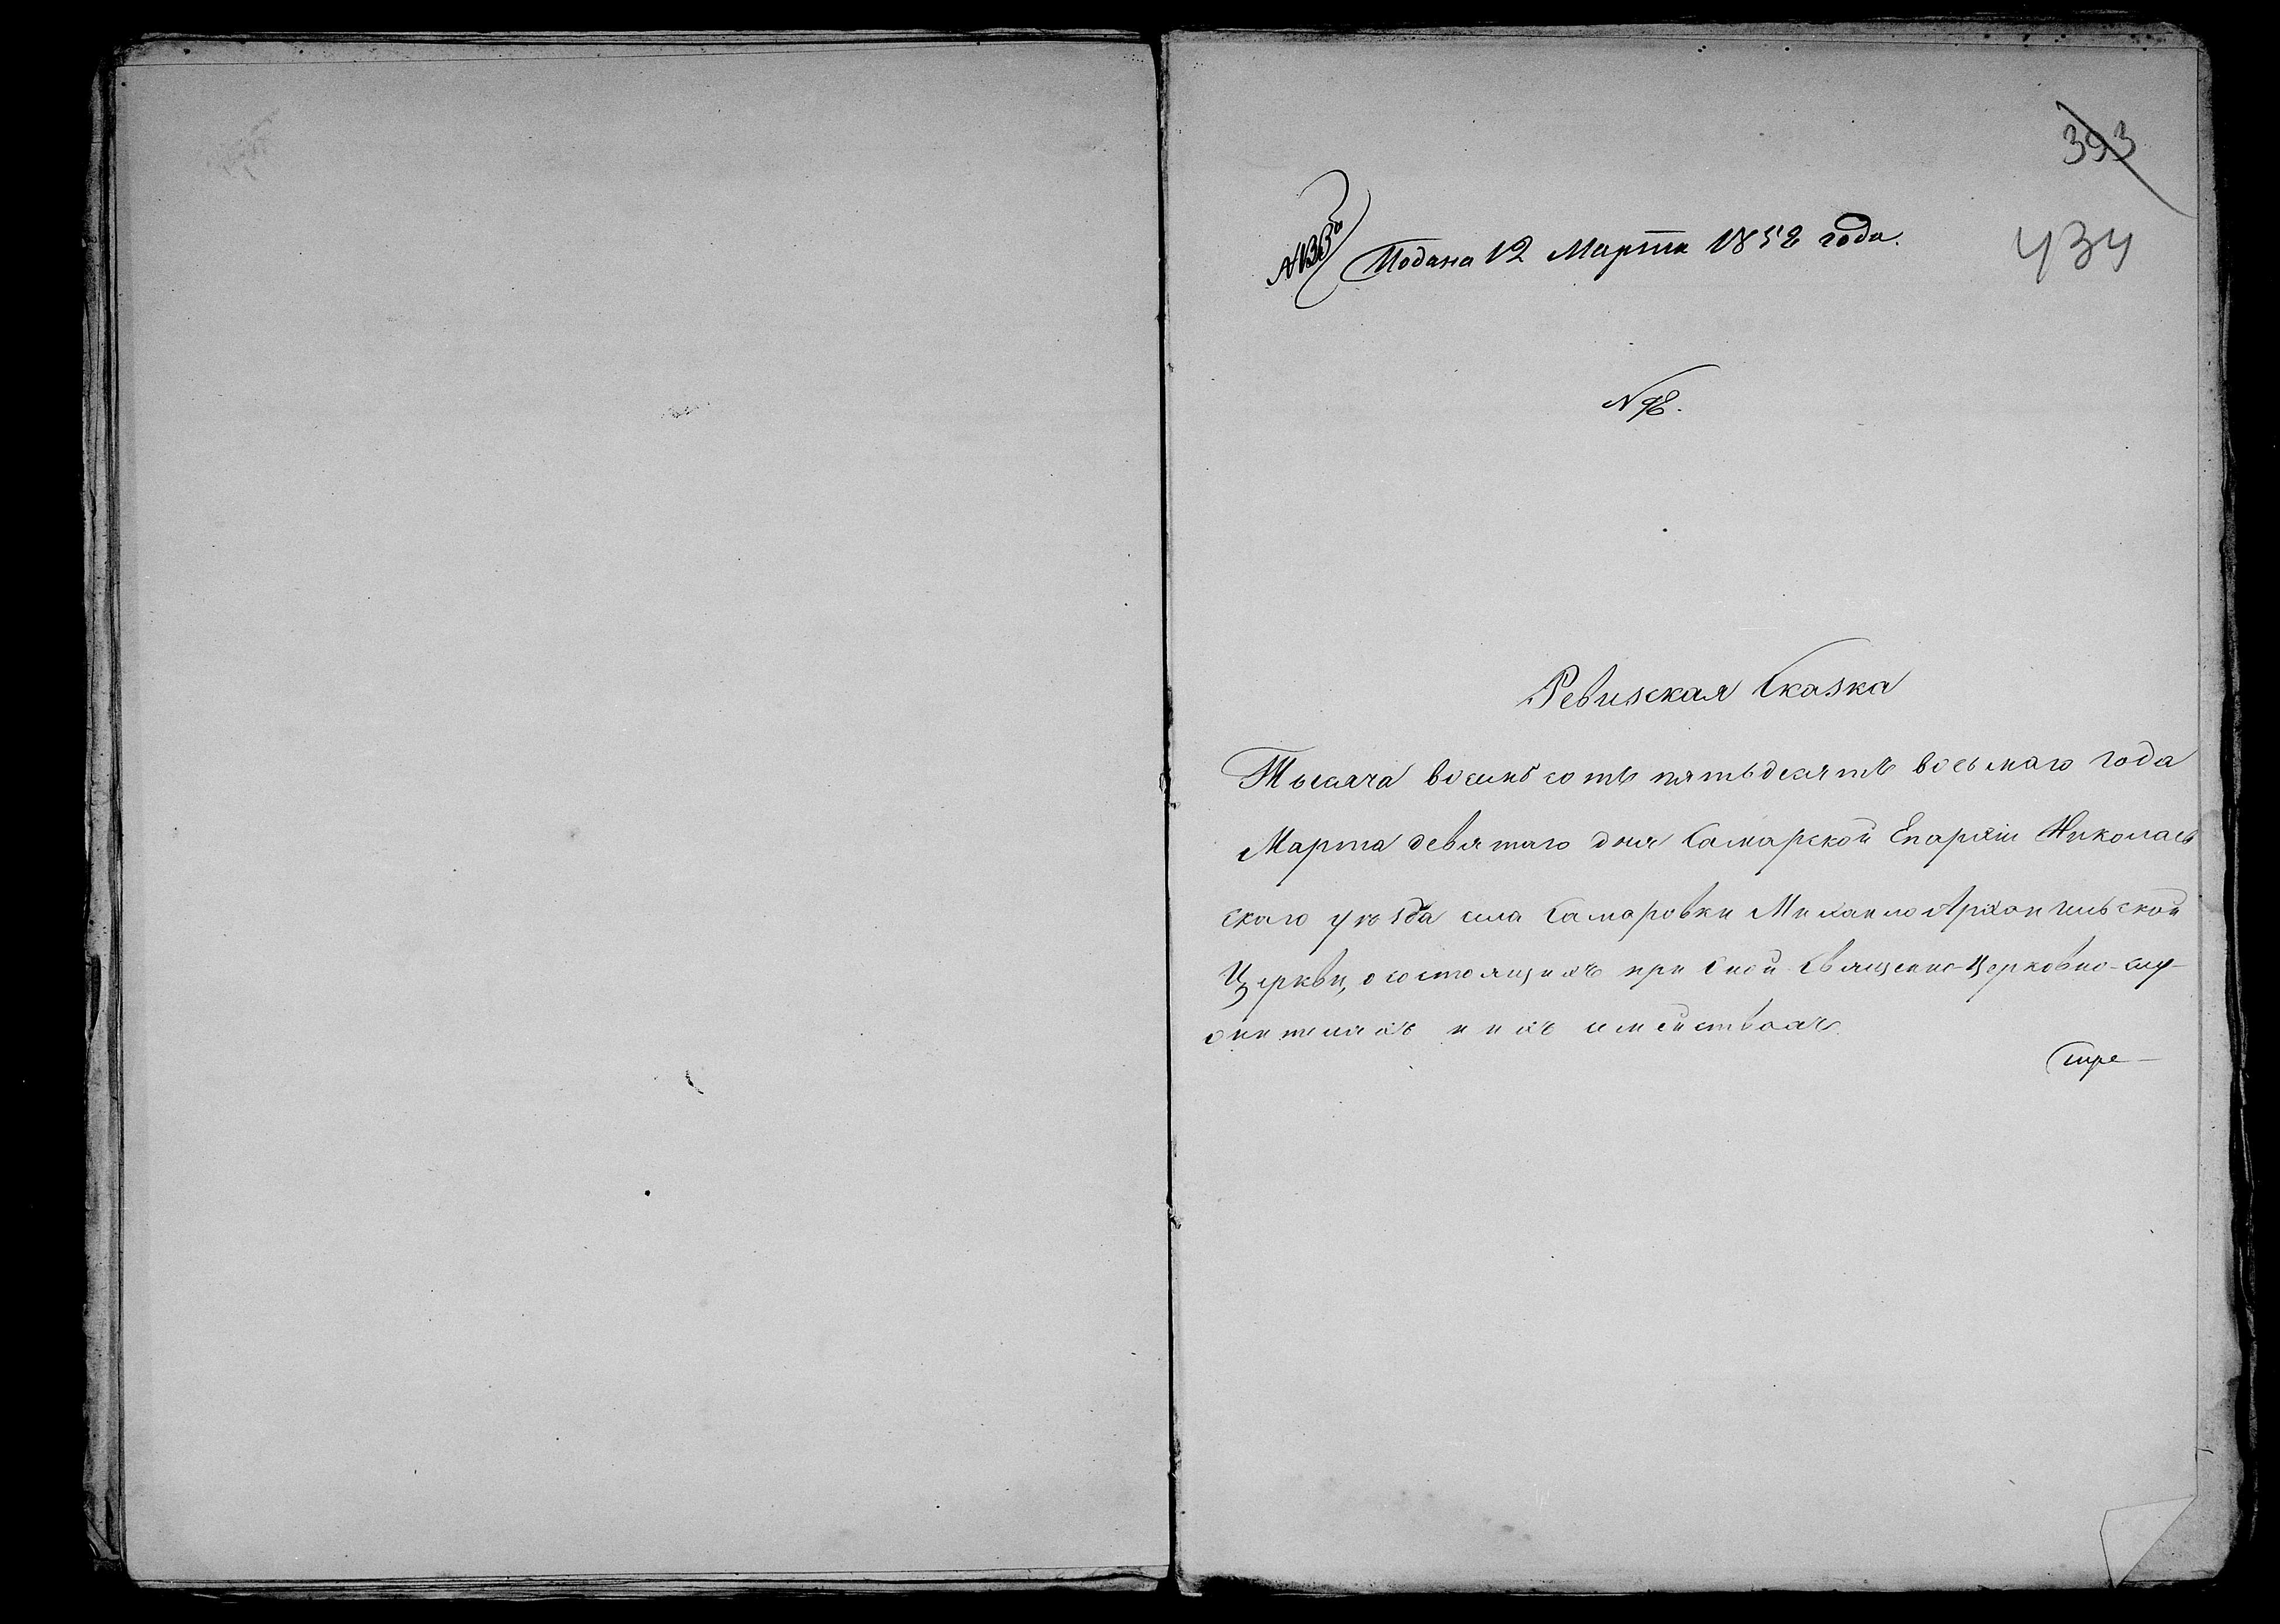 393
434
Подана 12 Марта 1858 года.
№ 98.
Ревизская Сказка
Тысяча восемь сотъ пятьдесятъ восьмаго года
Марта девятаго дня Самарской Епархіи Николаев
скаго уѣзда села Самаровки Михаило Архангельской
Церкви, о состоящихъ при оной Священно-церковно-слу-
жителяхъ и ихъ семействахъ